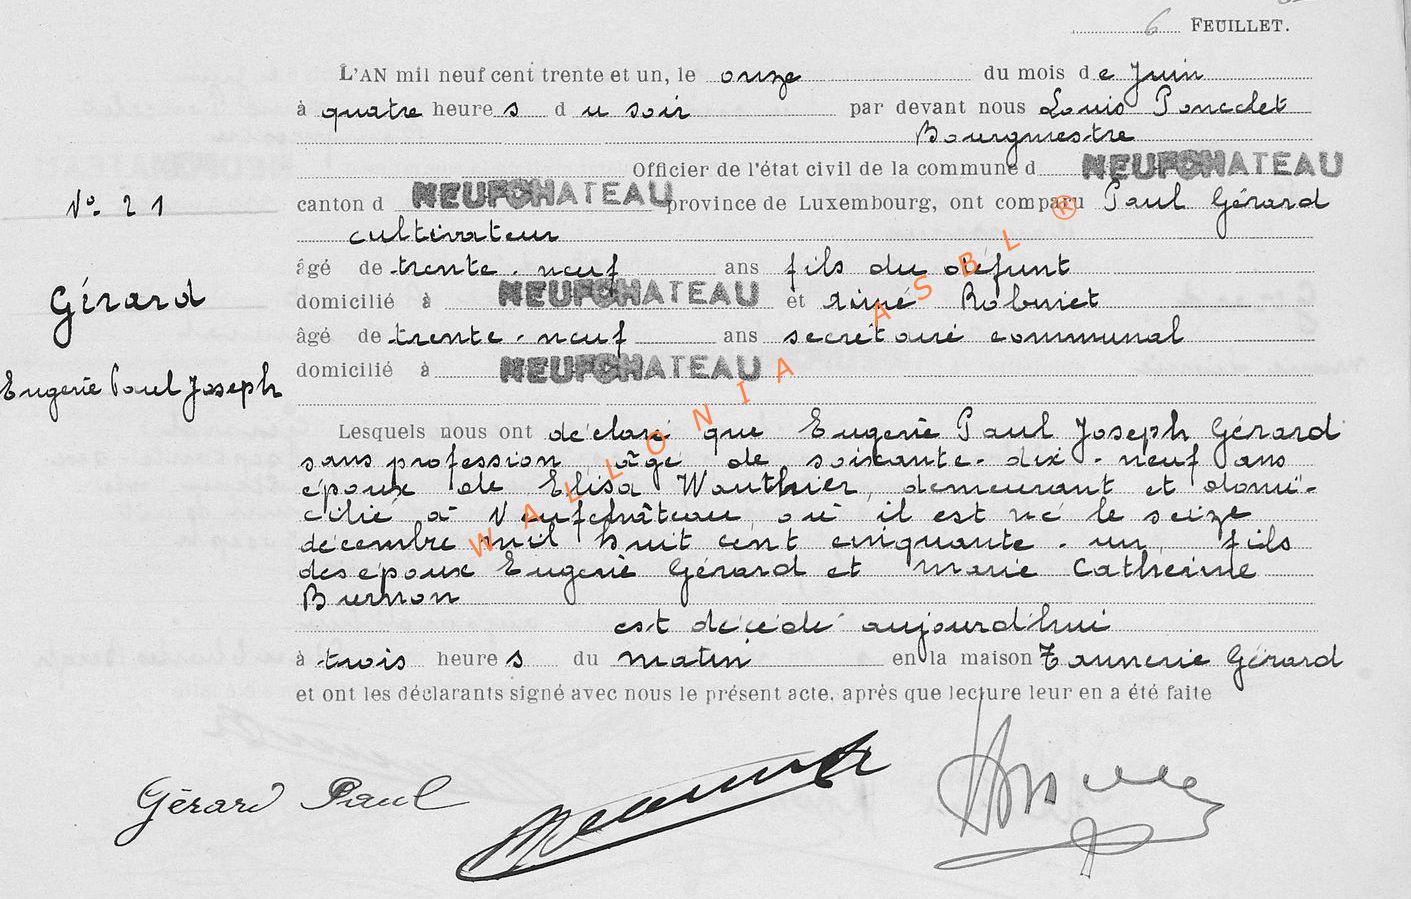 6 FEUILLET.
L'AN mil neuf cent trente et un, le onze du mois de Juin
à quatre heures du soir par devant nous Louis Poncelet
Bourgmestre
Officier de l'état civil de la commune d NEUFCHATEAU
N° 21
canton d NEUFCHATEAU province de Luxembourg, ont comparu Paul Gérard
cultivateur
âgé de trente-neuf ans fils du défunt
Gérard
domicilié à NEUFCHATEAU et Aimé Robinet
âgé de trente-neuf ans secrétaire communal
domicilié à NEUFCHATEAU
Eugène Paul Joseph
Lesquels nous ont déclaré que Eugène Paul Joseph Gérard
sans profession, âgé de soixante-dix-neuf ans
époux de Elisa Wauthier, demeurant et domi-
cilié à Neufchâteau, où il est né le seize
décembre mil huit cent cinquante-un, fils
des époux Eugène Gérard et Marie Catherine
Burnon
est décédé aujourd'hui
à trois heures du matin en la maison Tannerie Gérard
et ont les déclarants signé avec nous le présent acte, après que lecture leur en a été faite
Gérard Paul
WALLONIA ASBL ®